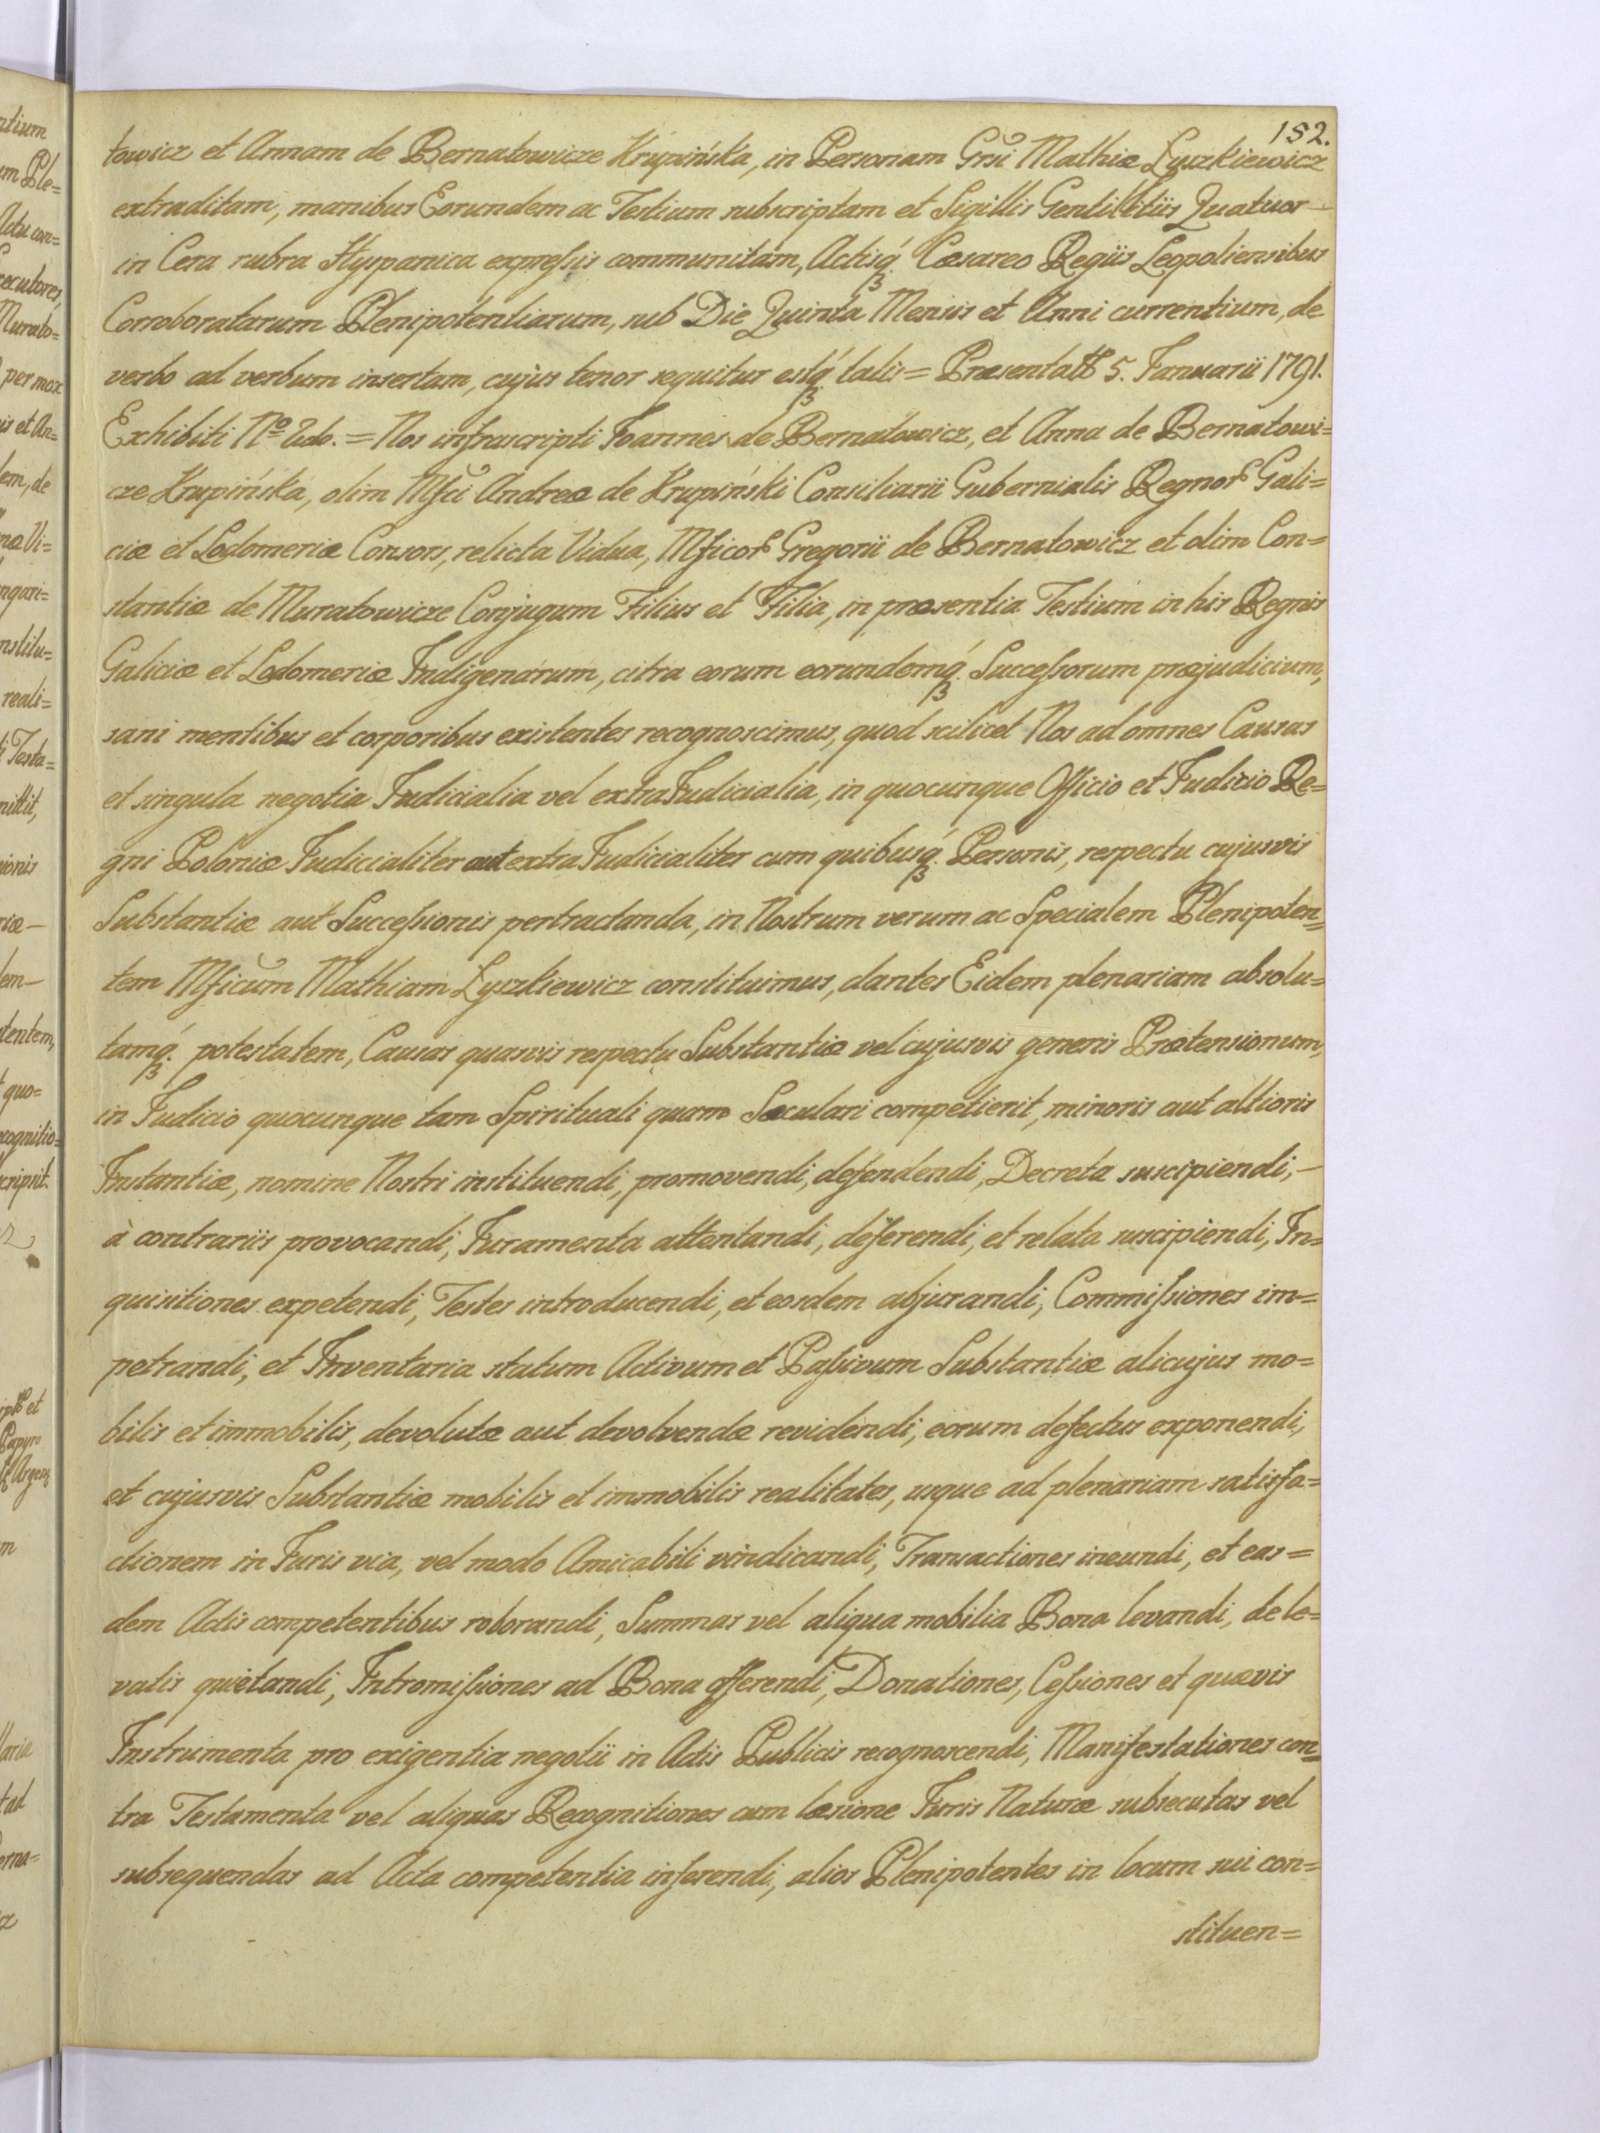 152.
towicz et Annam de Bernatowicze Krupińska, in Personam Grsi Mathiæ Łyszkiewicz
extraditam, manibus Eorundem ac Testium subscriptam et Sigillis Gentilitiis Quatuor —
in Cera rubra Hyspanica expressis communitam, Actisq́. Cæsareo Regiis Leopoliensibus
Corroboratarum Plenipotentiarum, sub Die Quinta Mensis et Anni currentium, de
verbo ad verbum insertam, cujus tenor sequitur estq́. talis = Præsentatt 5. Januarii 1791.
Exhibiti No = Nos infrascripti Joannes de Bernatowicz, et Anna de Bernatowi=
cze Krupińska, olim Mfci Andreæ de Krupiński Consiliarii Gubernialis Regnor Gali=
ciæ et Lodomeriæ Consors, relicta Vidua, Mficor Gregorii de Bernatowicz et olim Con=
stantiæ de Muratowicze Conjugum Filius et Filia, in præsentia Testium in his Regnis
Galiciæ et Lodomeriæ Indigenarum, citra eorum eorundemq́. Successorum præjudicium,
sani mentibus et corporibus existentes recognoscimus, quod scilicet Nos ad omnes Causas
et singula negotia Judicialia vel extraJudicialia, in quocunque Officio et Judicio Re=
gni Poloniæ Judicialiter aut extraJudicialiter cum quibusq́. Personis, respectu cujusvis
Substantiæ aut Successionis pertractanda, in Nostrum verum ac Specialem Plenipoten=
tem Mficum Mathiam Łyszkiewicz constituimus, dantes Eidem plenariam absolu=
tamq́. potestatem, Causas quasvis respectu Substantiæ vel cujusvis generis Prætensionum,
in Judicio quocunque tam Spirituali quam Sæculari competierit, minoris aut altioris
Instantiæ, nomine Nostri instituendi, promovendi, defendendi, Decreta suscipiendi, —
à contrariis provocandi, Juramenta attentandi, deferendi, et relata suscipiendi, In=
quisitiones expetendi, Testes introducendi, et eosdem abjurandi, Commissiones im=
petrandi, et Inventaria statum Activum et Passivum Substantiæ alicujus mo=
bilis et immobilis, devolutæ aut devolvendæ revidendi, eorum defectus exponendi,
et cujusvis Substantiæ mobilis et immobilis realitates, usque ad plenariam satisfa=
ctionem in Juris via, vel modo Amicabili vindicandi, Transactiones ineundi, et eas=
dem Actis competentibus roborandi, Summas vel aliqua mobilia Bona levandi, de le=
vatis quietandi, Intromissiones ad Bona offerendi, Donationes, Cessiones et quævis
Instrumenta pro exigentia negotii in Actis Publicis recognoscendi, Manifestationes con=
tra Testamenta vel aliquas Recognitiones cum læsione Juris Naturæ subsecutas vel
subsequendas ad Acta competentia inferendi, alios Plenipotentes in locum sui con=
stituen=